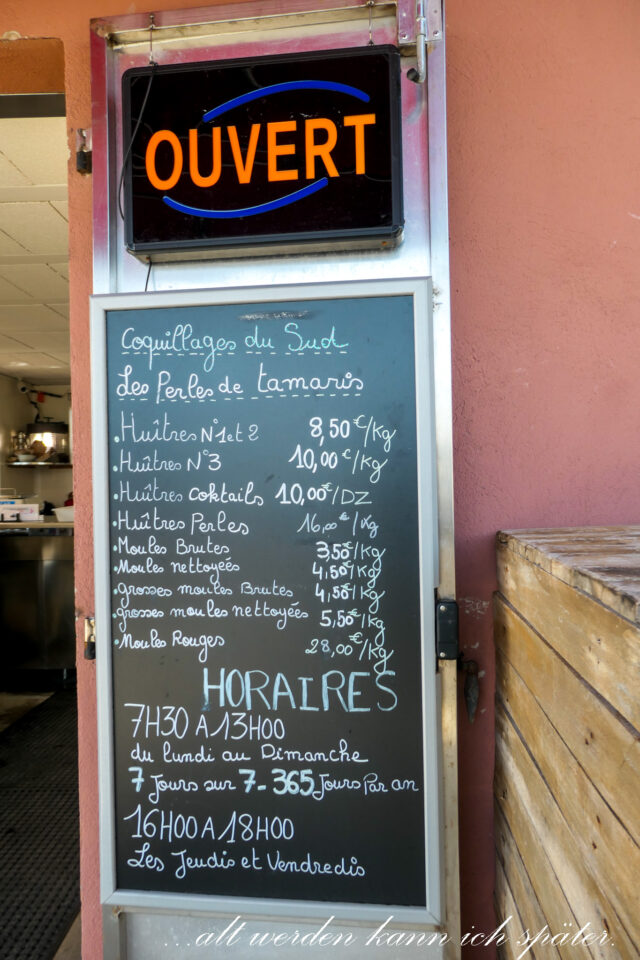 OUVERT
Coquillages du Sud
Les Perles de tamaris
.Huîtres N°1 et 2 8,50€/Kg
.Huîtres N°3 10,00€/Kg
.Huîtres coktails 10,00€/DZ
.Huîtres Perles 16,00€/Kg
.Moules Brutes 3,50€/Kg
.Moules nettoyées 4,50€/Kg
.grosses moules Brutes 4,50€/Kg
.grosses moules nettoyées 5,50€/Kg
.Moules Rouges 28,00€/Kg
HORAIRES
7H30 A 13H00
du lundi au Dimanche
7 Jours sur 7-365 Jours Par an
16H00 A 18H00
Les Jeudis et Vendredis
...alt werden kann ich später.